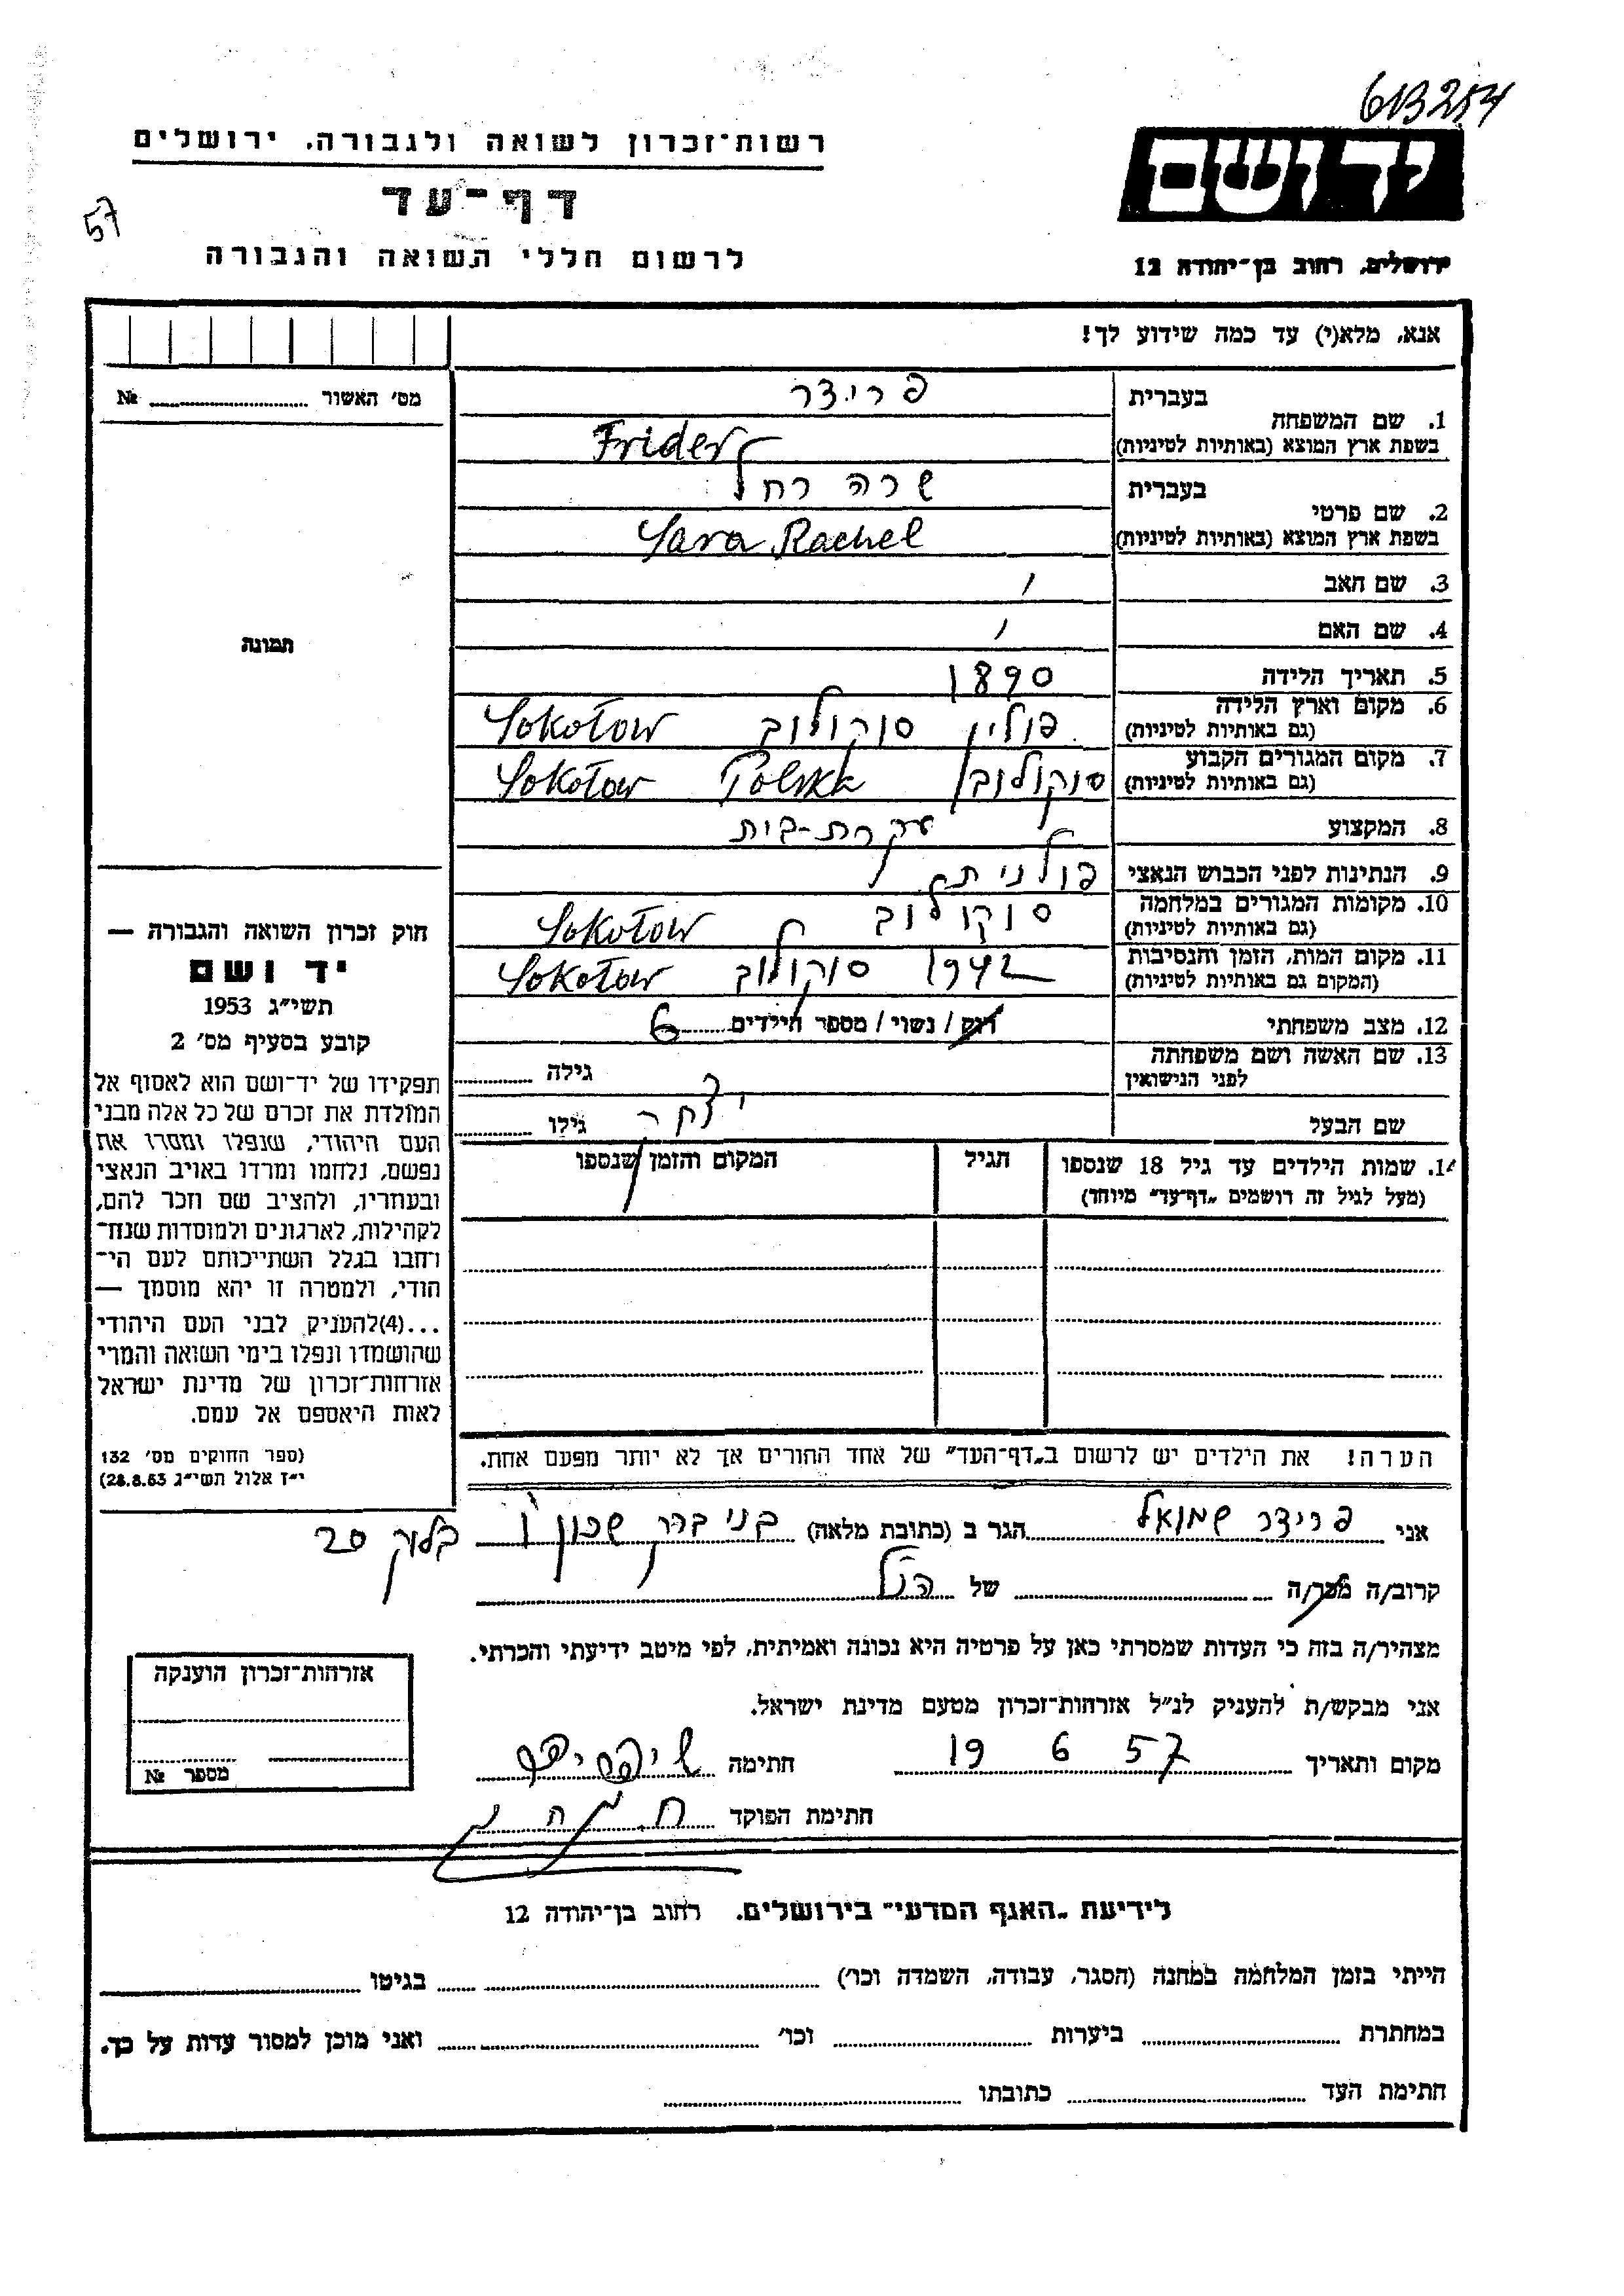 613254
רשות־זכרון לשואה ולגבורה. ירושלים
יד ושם
דף־עד
57
לרשום חללי השואה והגבורה
ירושלים, רחוב בן־יהודה 12
אנא, מלא(י) עד כמה שידוע לך!
מס׳ האשור № ........
בעברית פרידר
1. שם המשפחה
בשפת ארץ המוצא (באותיות לטיניות) Frider
בעברית שרה רחל
2. שם פרטי
בשפת ארץ המוצא (באותיות לטיניות) Sara Rachel
3. שם האב
4. שם האם
תמונה
5. תאריך הלידה 1890
6. מקום וארץ הלידה
(גם באותיות לטיניות) פולין סוקולוב Sokołow
7. מקום המגורים הקבוע
(גם באותיות לטיניות) סוקולוב Polska Sokołow
8. המקצוע עקרת-בית
9. הנתינות לפני הכבוש הנאצי פולנית
10. מקומות המגורים במלחמה
(גם באותיות לטיניות) סוקולוב Sokołow
11. מקום המות, הזמן והנסיבות
(המקום גם באותיות לטיניות) 1942 סוקולוב Sokołow
12. מצב משפחתי רוק / נשוי / מספר הילדים 6
13. שם האשה ושם משפחתה
לפני הנישואין גילה ........
שם הבעל יצחק גילו ........
14. שמות הילדים עד גיל 18 שנספו
(מעל לגיל זה רושמים „דף־עד״ מיוחד)
הגיל
המקום והזמן שנספו
חוק זכרון השואה והגבורה —
יד ושם
תשי״ג 1953
קובע בסעיף מס׳ 2
תפקידו של יד־ושם הוא לאסוף אל
המולדת את זכרם של כל אלה מבני
העם היהודי, שנפלו ומסרו את
נפשם, נלחמו ומרדו באויב הנאצי
ובעוזריו, ולהציב שם וזכר להם,
לקהילות, לארגונים ולמוסדות שנח־
רחבו בגלל השתייכותם לעם הי־
הודי, ולמטרה זו יהא מוסמך —
...(4)להעניק לבני העם היהודי
שהושמדו ונפלו בימי השואה והמרי
אזרחות־זכרון של מדינת ישראל
לאות היאספם אל עמם.
(ספר החוקים מס׳ 132
י״ז אלול תשי״ג 28.8.53)
הערה! את הילדים יש לרשום ב„דף־העד״ של אחד ההורים אך לא יותר מפעם אחת.
אני פרידר שמואל הגר ב (כתובת מלאה) בני ברק שכון ו׳ בלוק 20
קרוב/ה מכר/ה ........ של הנ״ל
מצהיר/ה בזה כי העדות שמסרתי כאן על פרטיה היא נכונה ואמיתית, לפי מיטב ידיעתי והכרתי.
אני מבקש/ת להעניק לנ״ל אזרחות־זכרון מטעם מדינת ישראל.
מקום ותאריך 19 6 57 חתימה
חתימת הפוקד
אזרחות־זכרון הוענקה
מספר №
לידיעת „האגף המדעי״ בירושלים. רחוב בן־יהודה 12
הייתי בזמן המלחמה במחנה (הסגר, עבודה, השמדה וכו׳) ........ בגיטו ........
במחתרת ........ ביערות ........ וכו׳ ........ ואני מוכן למסור עדות על כך.
חתימת העד ........ כתובתו ........